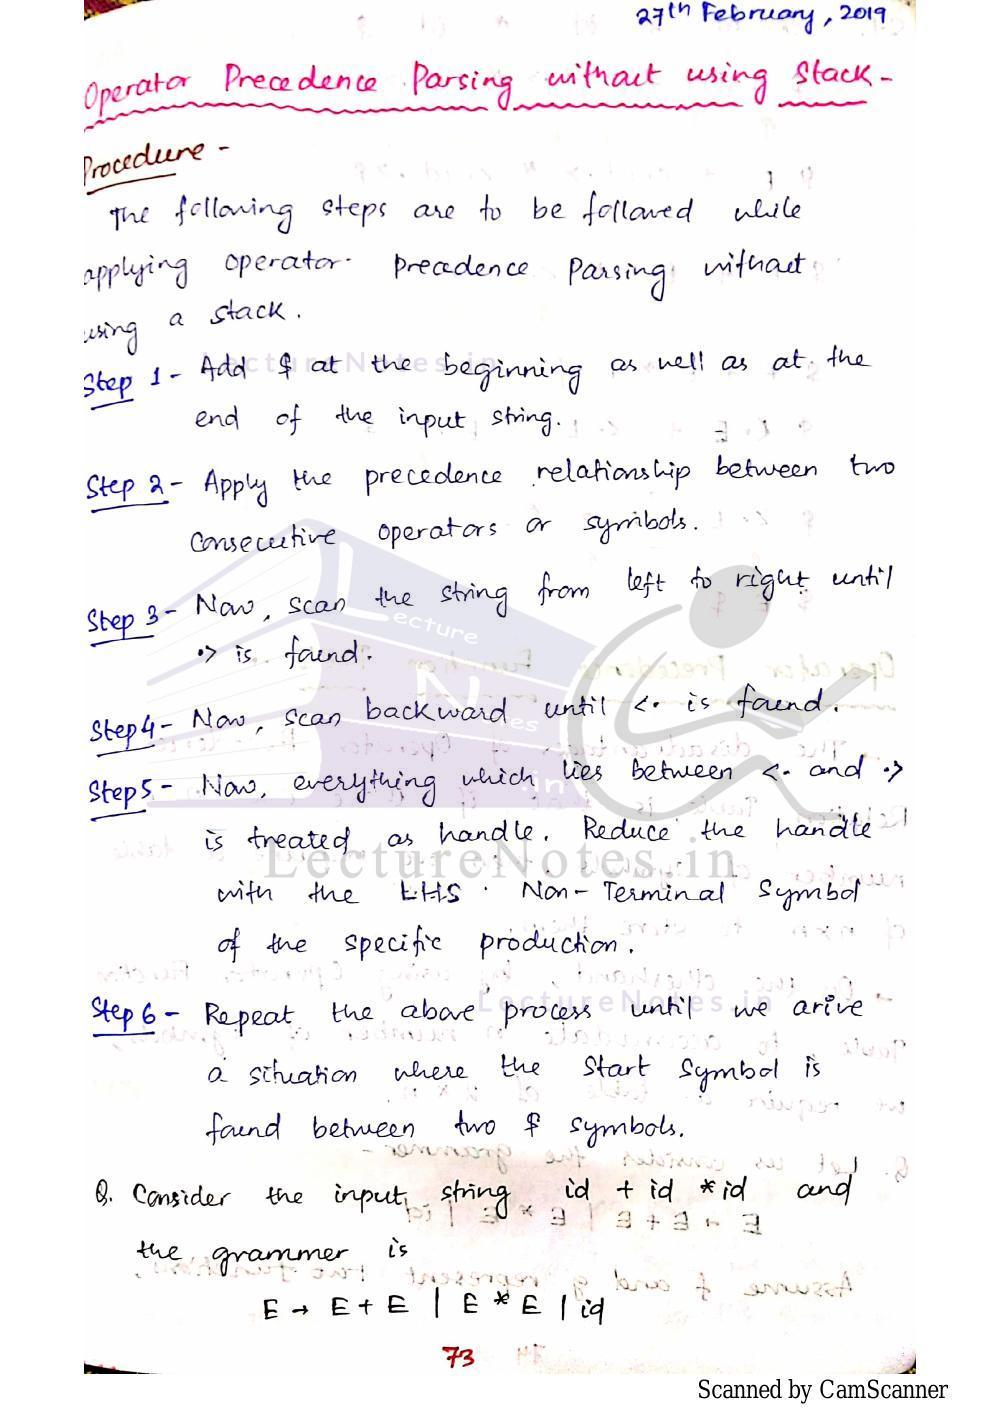 27th February, 2019
Operator Precedence Parsing without using Stack-
Procedure -
The following steps are to be followed while
applying operator precedence Parsing without
using a stack.
Step 1- Add $ at the beginning as well as at the
end of the input string.
Step 2- Apply the precedence relationship between two
Consecutive operators or symbols.
Step 3- Now, scan the string from left to right until
·> is found.
Step4- Now, scan backward until <· is found.
Step5- Now, everything which lies between <· and ·>
is treated as handle. Reduce the handle
with the LHS Non-Terminal Symbol
of the specific production.
Step 6- Repeat the above process until we arive
a situation where the Start Symbol is
found between two $ symbols.
Q. Consider the input string id + id * id and
the grammer is
E → E + E | E * E | id
73
LectureNotes.in
LectureNotes.in
Lecture
Notes
.in
LectureNotes.in
Scanned by CamScanner